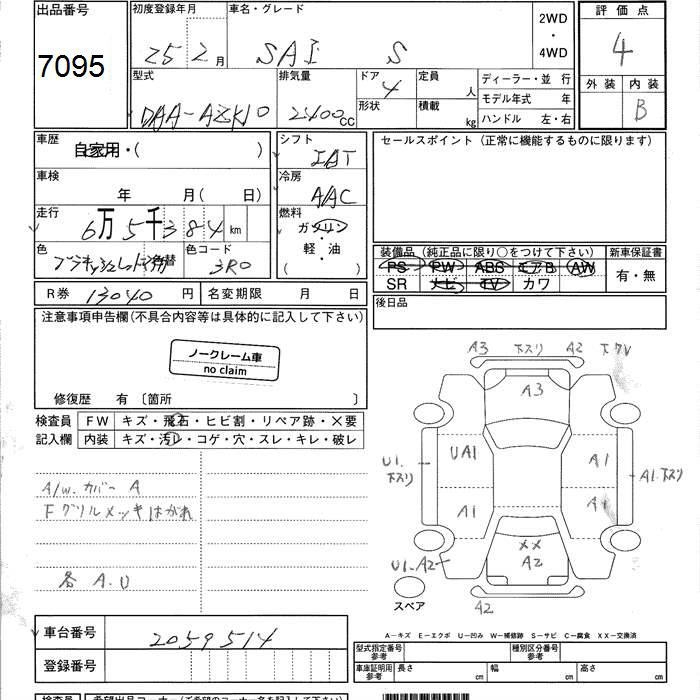 出品番号
7095
初度登録年月
25 2月
車名・グレード
SAI S
2WD
・
4WD
評価点
4
外装 内装
B
型式
DAA-AZK10
排気量
2400cc
ドア
4
形状
定員
人
積載
kg
ディーラー・並 行
モデル年式 年
ハンドル 左・右
車歴
自家用・( )
シフト
IAT
セールスポイント(正常に機能するものに限ります)
車検
年 月( 日)
冷房
AAC
走行
6万5千384km
燃料
ガソリン
・
軽・油
( )
色
色替
色コード
3R0
装備品(純正品に限り○をつけて下さい)
PS PW ABS エアB AW
SR ナビ TV カワ
新車保証書
有・無
R券 13040円
名変期限 月 日
後日品
注意事項申告欄(不具合内容等は具体的に記入して下さい)
ノークレーム車
no claim
修復歴 有〔箇所 〕
検査員
記入欄
FW キズ・飛石・ヒビ割・リペア跡・X要
内装 キズ・汚レ・コゲ・穴・スレ・キレ・破レ
A/W. カバー A
Fグリルメッキはがれ
各 A.U
A3 下スリ A2 下グレ
A3
UA1
A1
U1.
下スリ
A1.下スリ
A1
A1
XX
A2
U1-A2
A2
スペア
車台番号 2059514
登録番号
A-キズ E-エクボ U-凹み W-補修跡 S-サビ C-腐食 XX-交換済
型式指定番号
参考
種別区分番号
参考
車庫証明用
参考
長さ cm
幅 cm
高さ cm
検査員
希望出品コーナー(ご希望のコーナー名を記入下さい)